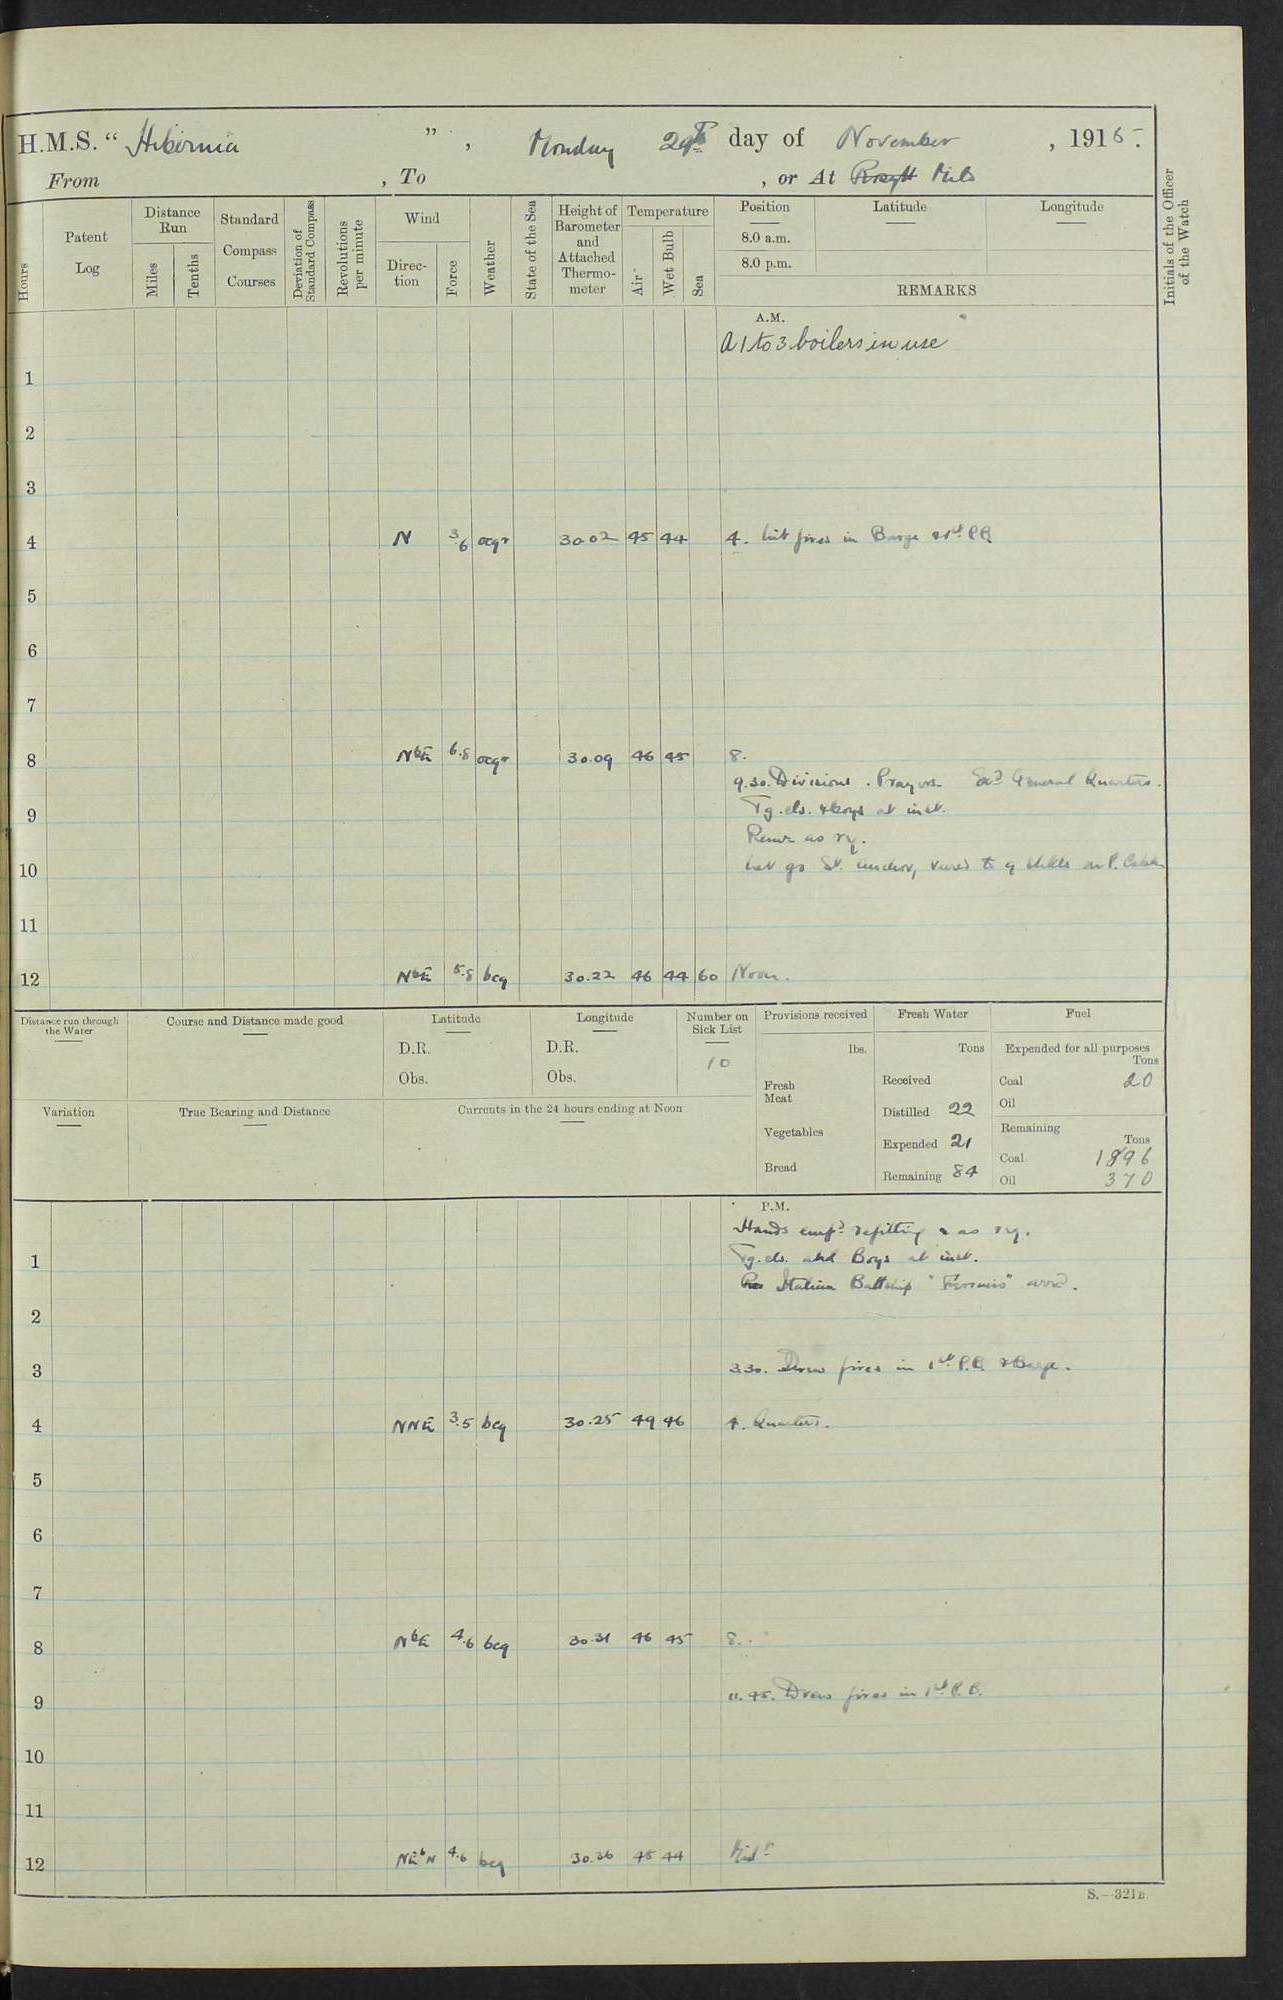 H.M.S. “ Hibernia ” , Monday 29th day of November , 1915.
From , To , or At Milo
Hours
Patent Log
Distance Run
Miles
Tenths
Standard Compass Courses
Deviation of Standard Compass
Revolutions per minute
Wind
Direction
Force
Weather
State of the Sea
Height of Barometer and Attached Thermometer
Temperature
Air
Wet Bulb
Sea
Position
8.0 a.m.
8.0 p.m.
Latitude
Longitude
REMARKS
Initials of the Officer of the Watch
A.M.
A 1 to 3 boilers in use
1
2
3
4 N 3.6 ocqr 30.02 45 44 4. Lit fires in Barge & 1st P.B.
5
6
7
8 NbE 6.8 ocqr 30.09 46 45 8.
9.30. Divisions. Prayers. Exd General Quarters.
9 Tg. cls. & boys at inst.
Remr as rq.
10 Let go St. anchor, veered to 9 shkls on P. Cable
11
12 NbE 5.8 bcq 30.22 46 44 60 Noon.
Distance run through the Water
Course and Distance made good
Latitude
D.R.
Obs.
Longitude
D.R.
Obs.
Number on Sick List
10
Provisions received
lbs.
Fresh Meat
Vegetables
Bread
Fresh Water
Tons
Received
Distilled 22
Expended 21
Remaining 84
Fuel
Expended for all purposes
Tons
Coal 20
Oil
Remaining
Tons
Coal 1896
Oil 370
Variation
True Bearing and Distance
Currents in the 24 hours ending at Noon
P.M.
Hands empd refitting & as rq.
1 Tg. cls. and Boys at inst.
Italian Battship " " arrd.
2
3 3.30. Drew fires in 1st P.B. & Barge.
4 NNE 3.5 bcq 30.25 49 46 4. Quarters.
5
6
7
8 NbE 4.6 bcq 30.31 46 45 8.
9 11.45. Drew fires in 1st P.B.
10
11
12 NEbN 4.6 bcq 30.36 45 44 Midt
S.—321B